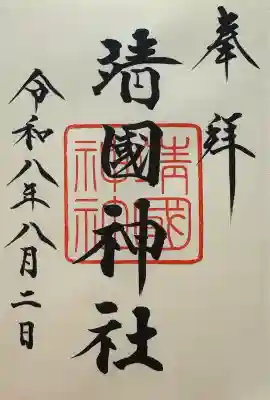 奉拝
靖國神社
靖國神社
令和八年八月二日